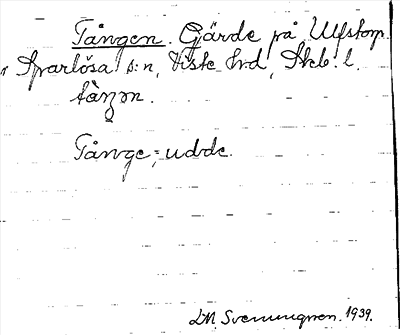 Tången. Gärde på Ulfstorp
i Sparlösa s:n, Viste hrd, Skb. l.
tàŋən.
Tånge = udde.
LM Svenungsen. 1939.